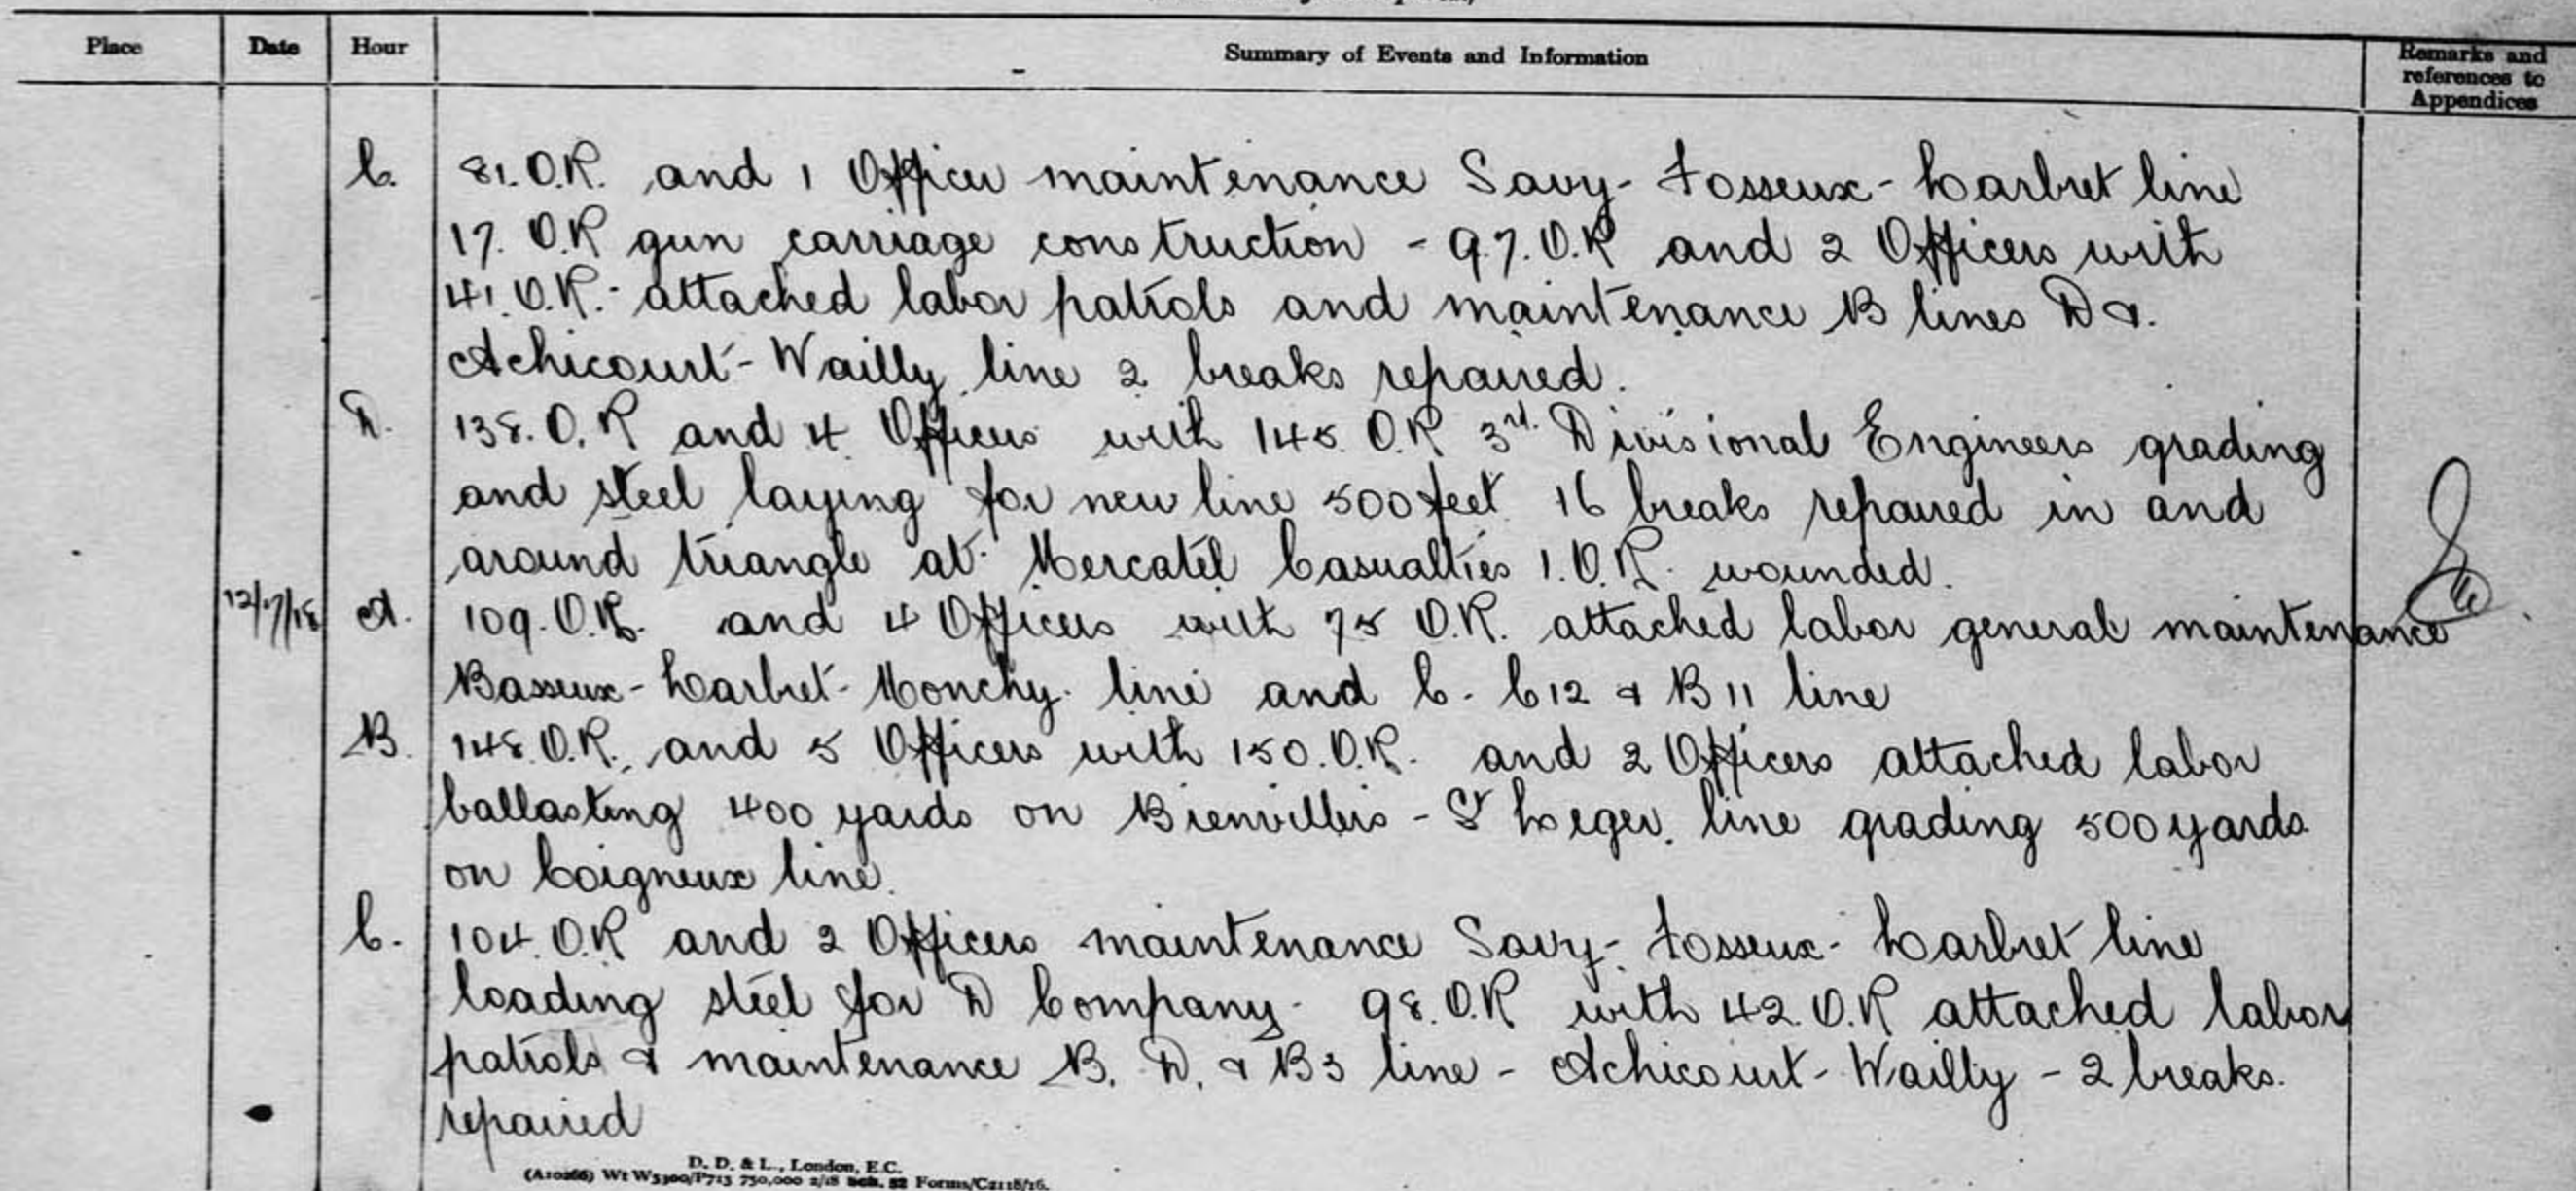 Place Date Hour Summary of Events and Information Remarks and references to Appendices
C. 81. O.R. and 1 Officer maintenance Savy- Fosseux- Larbret line
17. O.R gun carriage construction - 97. O.R and 2 Officers with
41. O.R. attached labor patrols and maintenance B lines D &.
Achicourt- Wailly line 2 breaks repaired.
D. 138. O.R and 4 Officers with 145. O.R 3rd. Divisional Engineers grading
and steel laying for new line 500 feet 16 breaks repaired in and
around triangle at Mercatel Casualties 1. O.R. wounded.
12/7/18 A. 109. O.R. and 4 Officers with 75 O.R. attached labor general maintenance
Basseux- Larbret- Monchy. line and C. C12 & B11 line
B. 148. O.R., and 5 Officers with 150. O.R. and 2 Officers attached labor
ballasting 400 yards on Bienvillers - St Leger. line grading 500 yards
on Coigneux line.
C. 104. O.R and 2 Officers maintenance Savy- Fosseux- Larbret line
loading steel for D Company- 98. O.R with 42. O.R attached labor
patrols & maintenance B. D. & B3 line - Achicourt- Wailly - 2 breaks.
repaired
D. D. & L., London, E.C.
(A10266) Wt W5300/P713 750,000 2/18 Sch. 52 Forms/C2118/16.